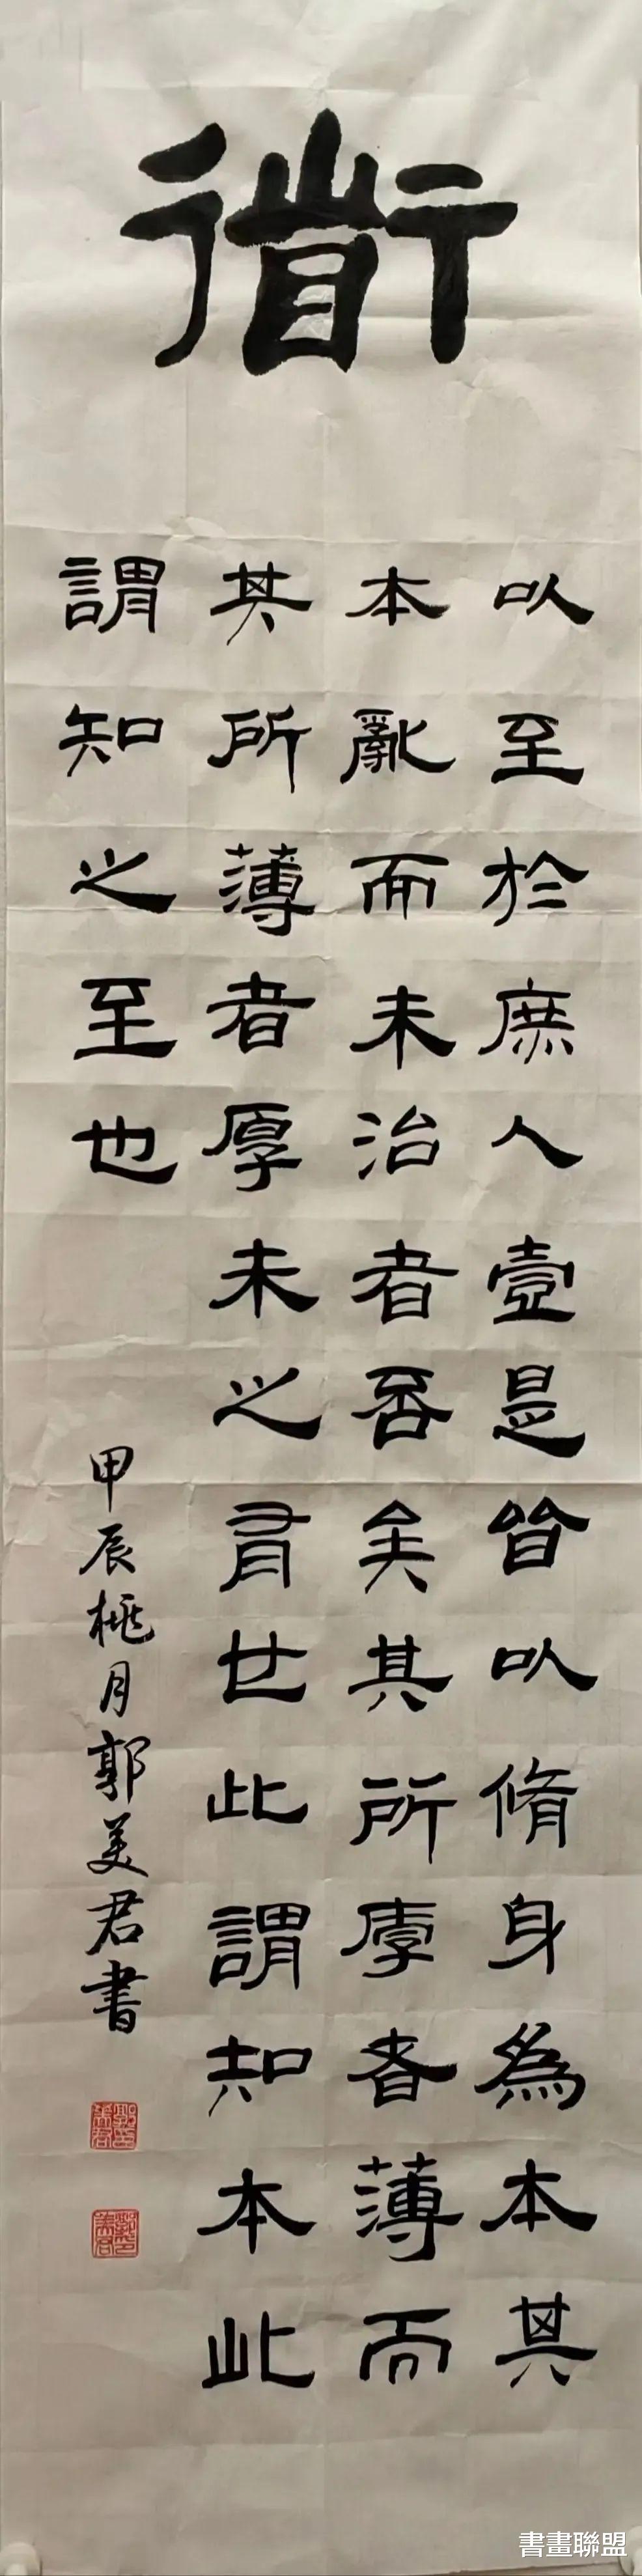 衜
以至於庶人壹是皆以脩身為本其
本亂而末治者否矣其所厚者薄而
其所薄者厚未之有也此謂知本此
謂知之至也
甲辰桃月郭美君書
書畫聯盟